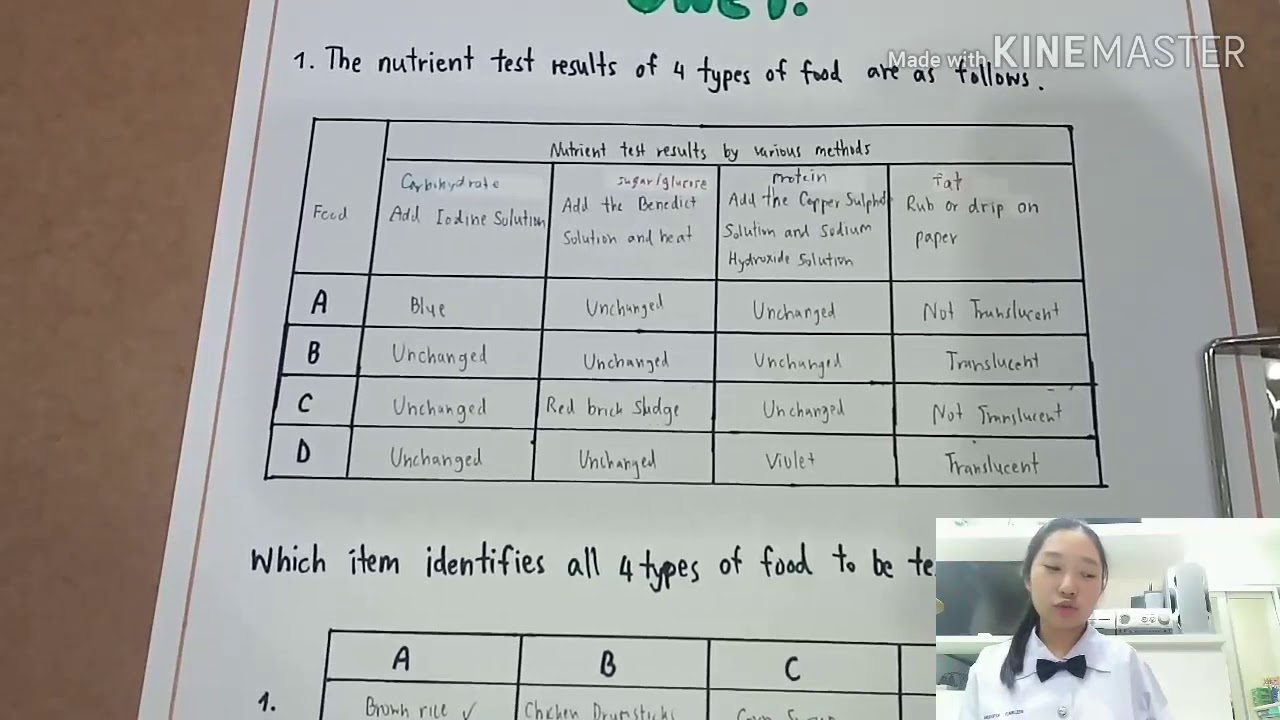 ONET.
Made with KINEMASTER
1. The nutrient test results of 4 types of food are as follows.
Nutrient test results by various methods
Food
Carbihydrate
Add Iodine Solution
sugar/glucose
Add the Benedict
Solution and heat
protein
Add the Copper Sulphd
Solution and Sodium
Hydroxide Solution
Fat
Rub or drip on
paper
A Blue Unchanged Unchanged Not Translucent
B Unchanged Unchanged Unchanged Translucent
C Unchanged Red brick Sludge Unchanged Not Translucent
D Unchanged Unchanged Violet Translucent
Which item identifies all 4 types of food to be te
A B C
1. Brown rice ✓ Chicken Drumsticks